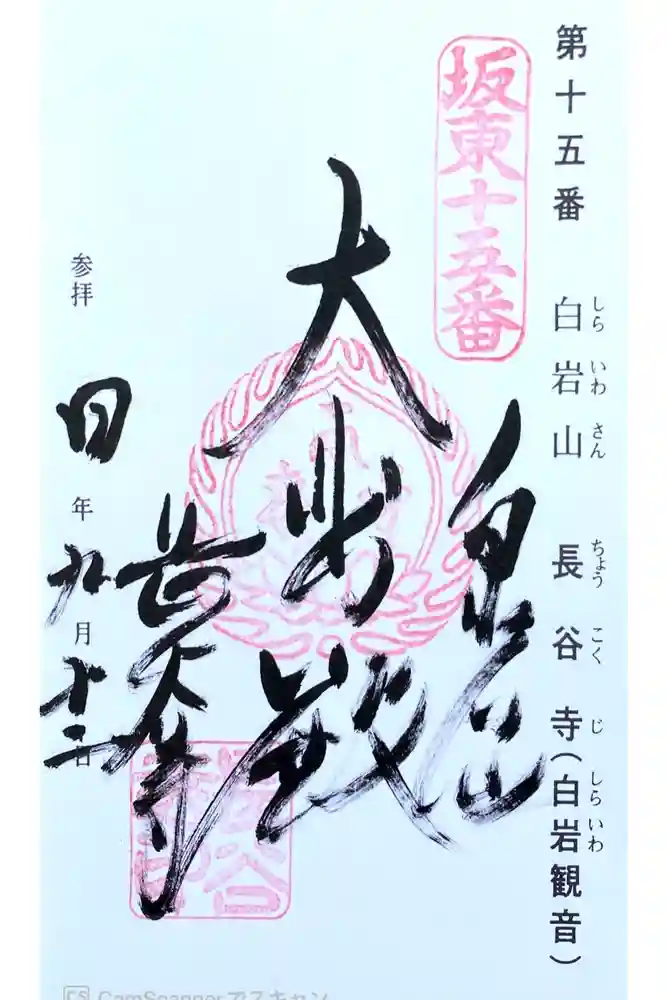 第十五番 白岩山 長谷寺(白岩観音)
しらいわさん ちょうこくじ しらいわ
坂東十五番
白岩山
大悲殿
長谷寺
参拝 四年九月十二日
CS CamScannerでスキャン